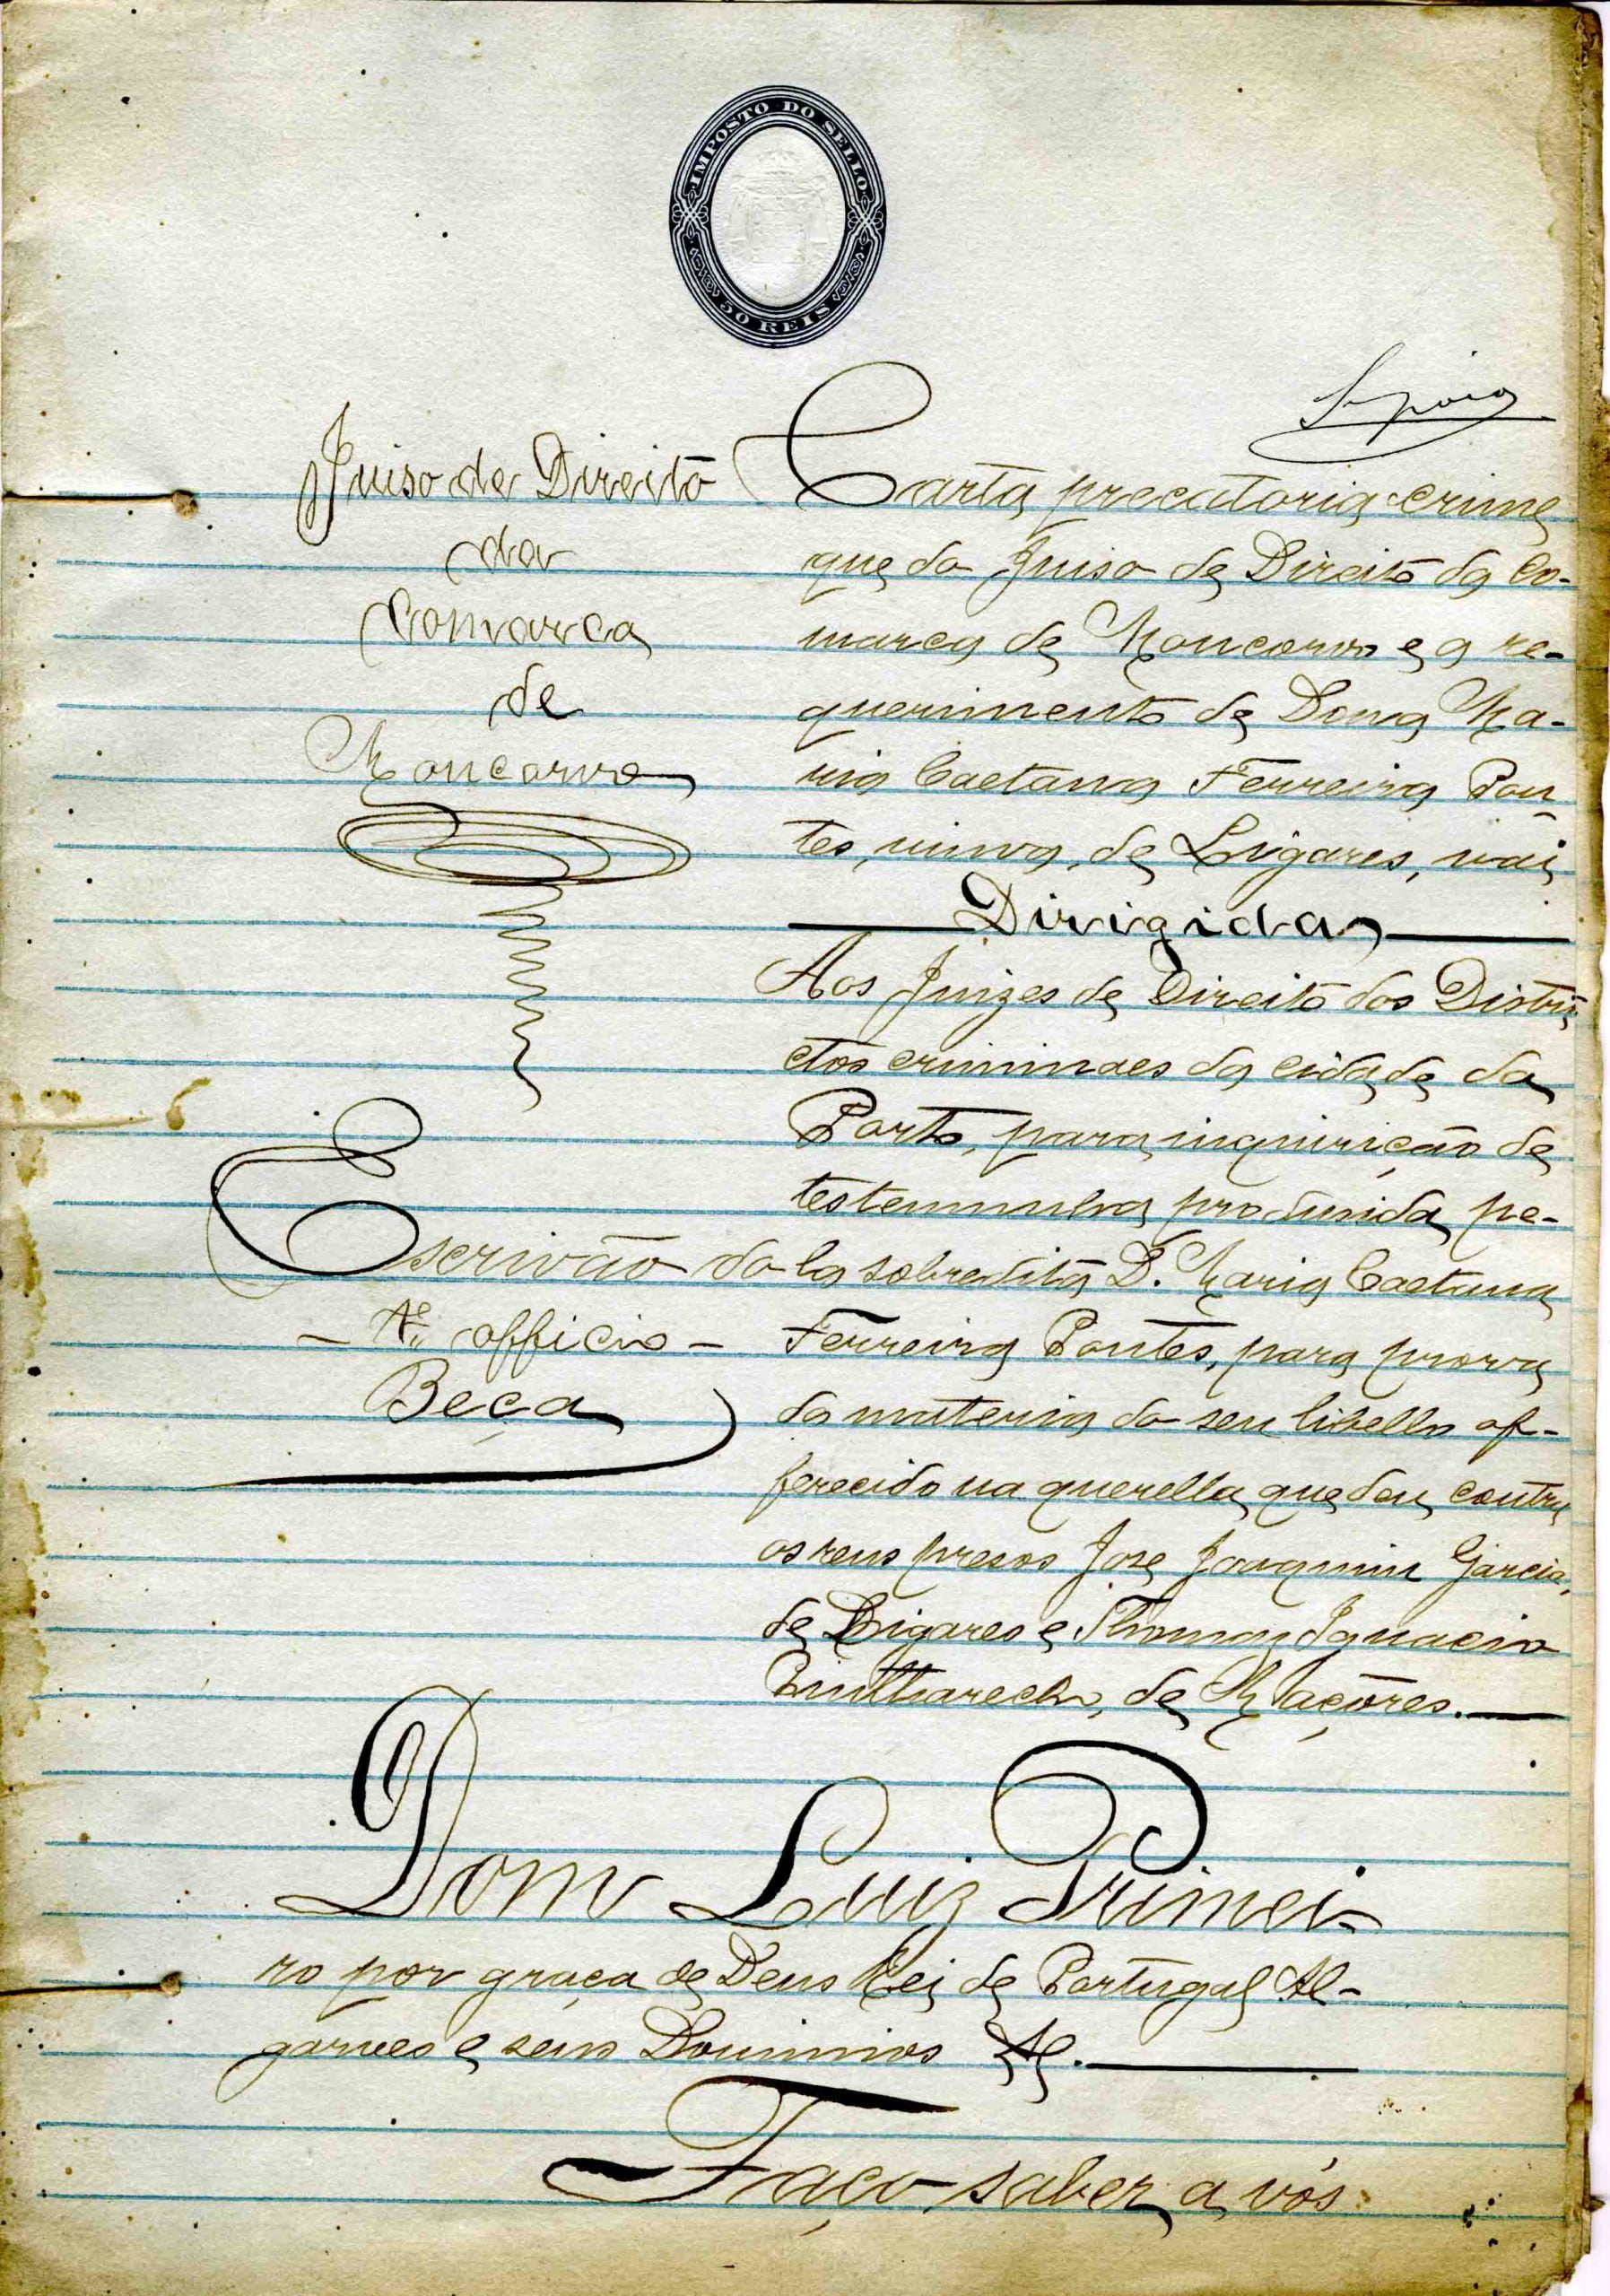 IMPOSTO DO SELLO
50 REIS
Juiso de Direito
da
Comarca
de
Moncorvo
Escrivão do
officio
Beça
Carta precatoria crime
que do Juiso de Direito da Co-
marca de Moncorvo e a re-
querimento de Dona Ma-
ria Caetana Ferreira Pon-
tes, viuva, de Ligares, vai
Dirigida
Aos Juizes de Direito dos Distri-
ctos criminaes da cidade do
Porto, para inquirição de
testemunha produsida pe-
la sobredita D. Maria Caetana
Ferreira Pontes, para prova
da materia do seu libello of-
ferecido na querella que deu contra
os reus presos Jose Joaquim Garcia,
de Ligares e Thomaz Ignacio
de Maçores.
Dom Luiz Primei-
ro por graça de Deus Rei de Portugal Al-
garves e seus Dominios &.
Faço saber a vós